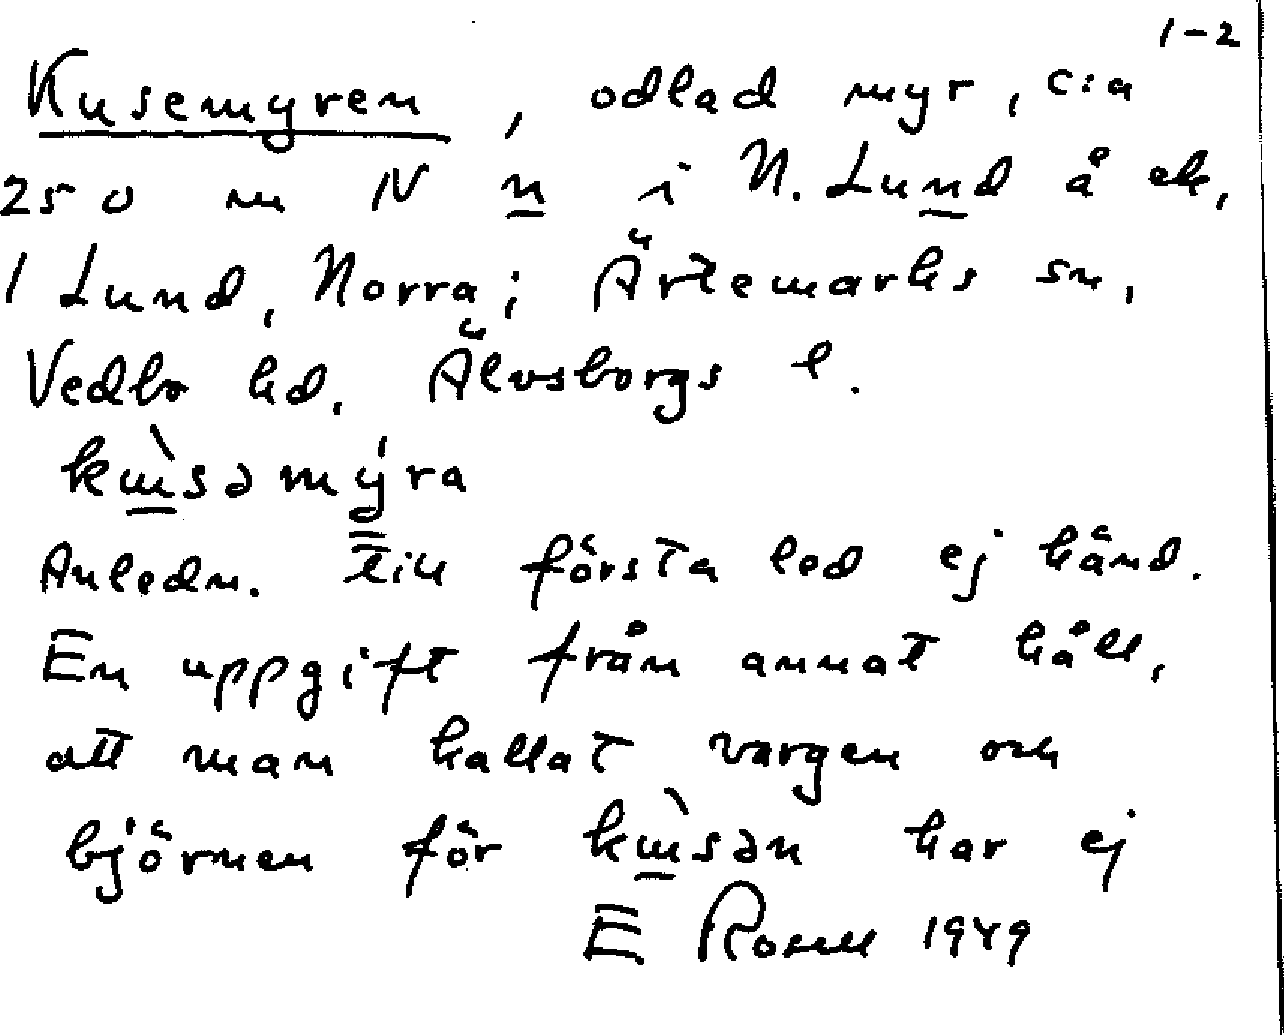 1-2
Kusemyren, odlad myr, c:a
250 m N n i N. Lund å ek,
1 Lund, Norra; Ärtemarks sn,
Vedbo hd. Älvsborgs l.
kɯ̀səmýra
Anledn. till första led ej känd.
En uppgift från annat håll,
att man kallat vargen och
björnen för kɯ̀sən har ej
E Rosell 1949